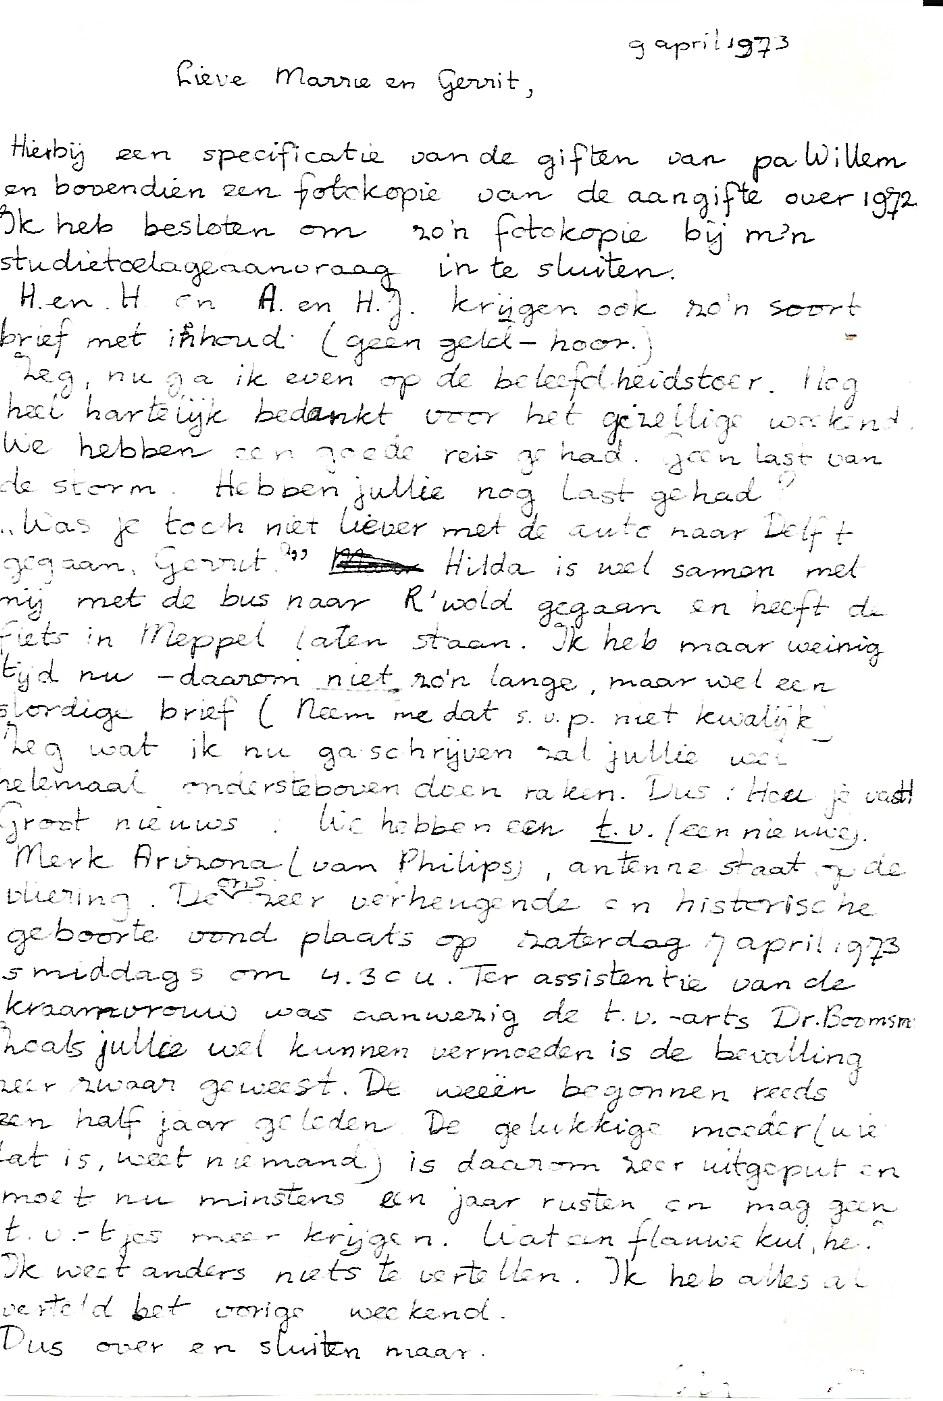 9 april 1973
Lieve Marrie en Gerrit,
Hierbij een specificatie van de giften van pa Willem
en bovendien een fotokopie van de aangifte over 1972
Ik heb besloten om zo'n fotokopie bij m'n
studietoelageaanvraag in te sluiten.
H. en H en A. en H.J. krijgen ook zo'n soort
brief met inhoud (geen geld - hoor.)
Zeg, nu ga ik even op de beleefdheidstoer. Nog
heel hartelijk bedankt voor het gezellige weekend.
We hebben een goede reis gehad. Geen last van
de storm. Hebben jullie nog last gehad?
"Was je toch niet liever met de auto naar Delft
gegaan, Gerrit?" Hilda is wel samen met
mij met de bus naar R'wold gegaan en heeft de
fiets in Meppel laten staan. Ik heb maar weinig
tijd nu - daarom niet zo'n lange, maar wel een
slordige brief (Neem me dat s.v.p. niet kwalijk)
Zeg wat ik nu ga schrijven zal jullie wel
helemaal ondersteboven doen raken. Dus: Hou je vast!
Groot nieuws: We hebben een t.v. (een nieuwe).
Merk Arizona (van Philips), antenne staat op de
vliering. De ons zeer verheugende en historische
geboorte vond plaats op zaterdag 7 april 1973
smiddags om 4.30 u. Ter assistentie van de
kraamvrouw was aanwezig de t.v.-arts Dr. Boomsm
Zoals jullie wel kunnen vermoeden is de bevalling
zeer zwaar geweest. De weeën begonnen reeds
een half jaar geleden. De gelukkige moeder (wie
dat is, weet niemand) is daarom zeer uitgeput en
moet nu minstens een jaar rusten en mag geen
t.v.-tjes meer krijgen. Wat een flauwe kul, hè?
Ik weet anders niets te vertellen. Ik heb alles al
verteld het vorige weekend.
Dus over en sluiten maar.